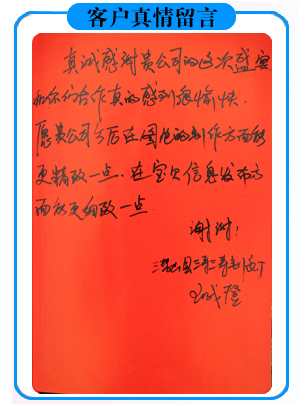 客户真情留言
真诚感谢贵公司的这次盛宴
和你们合作真的感到很愉快.
愿贵公司今后在图片的制作方面能
更精致一点. 在宝贝信息发布方
面能更细致一点
谢谢!